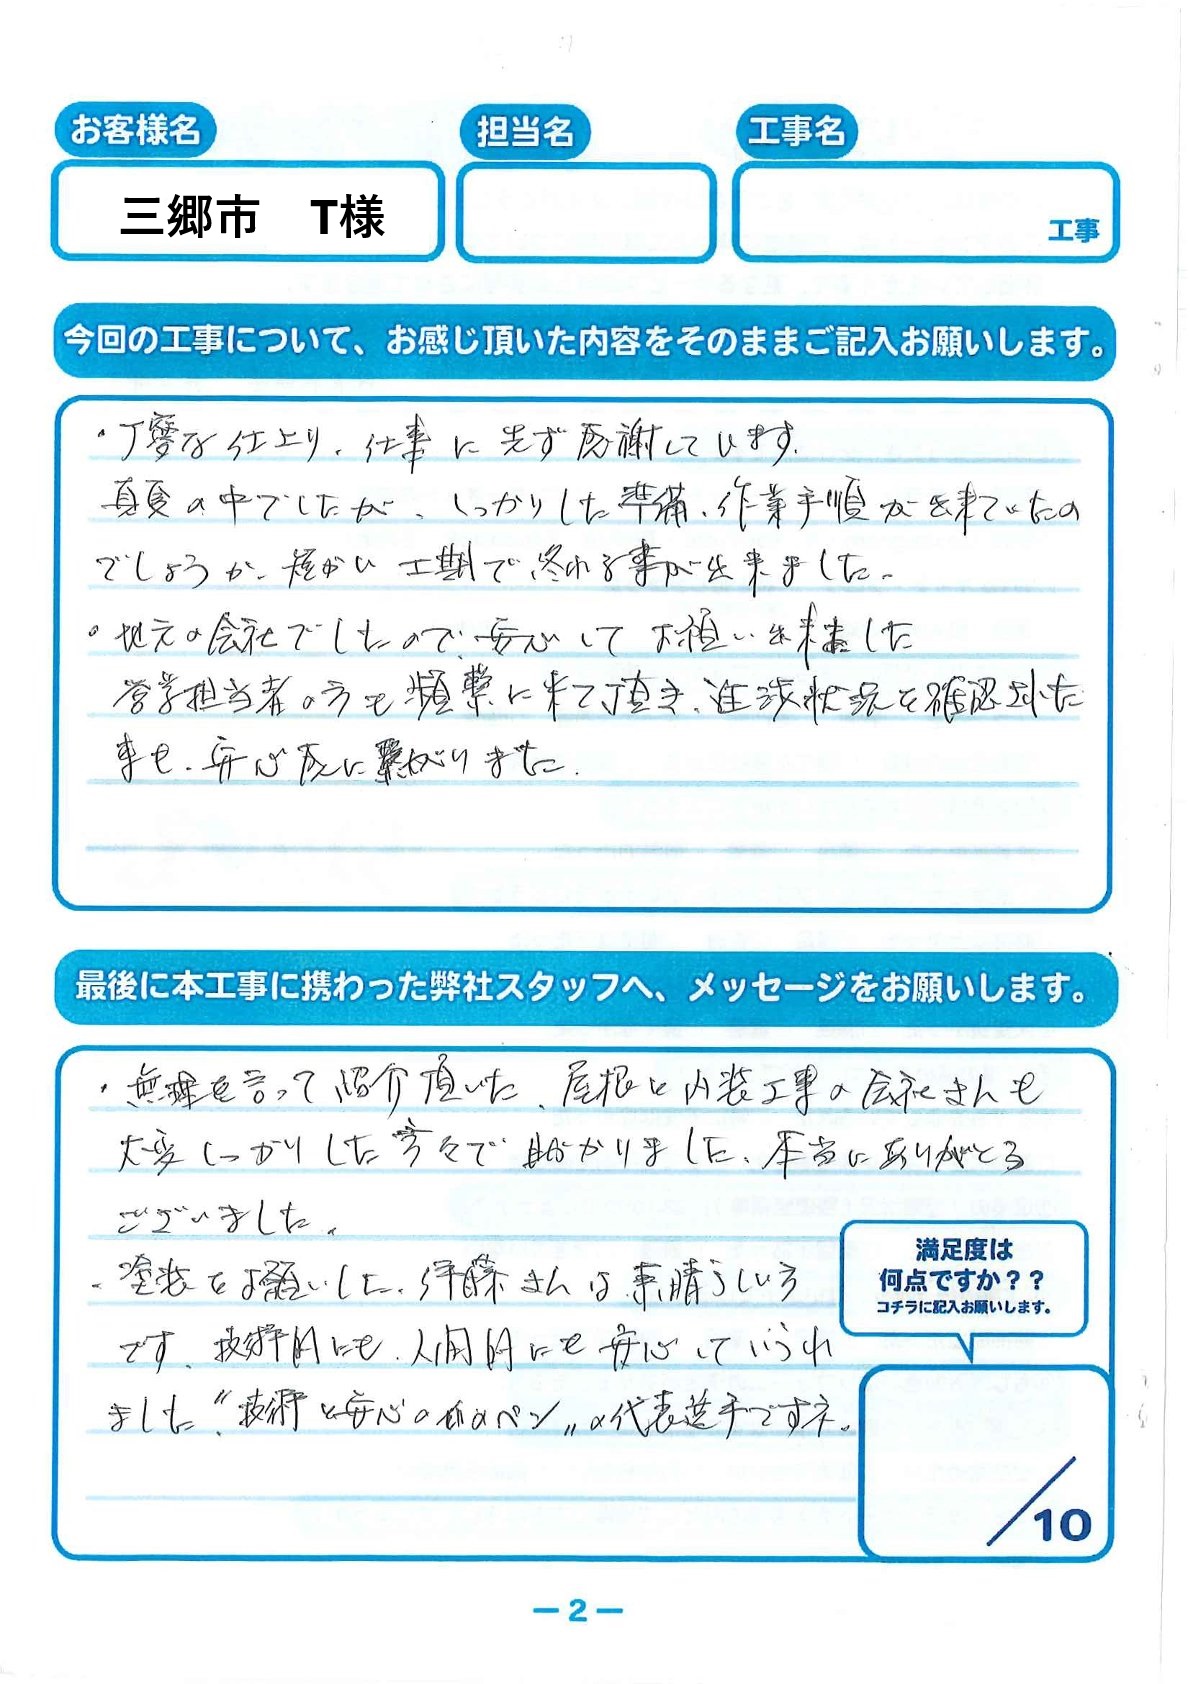 お客様名
担当名
工事名
三郷市 T様
工事
今回の工事について、お感じ頂いた内容をそのままご記入お願いします。
・丁寧な仕上り、仕事に先ず感謝しています。
真夏の中でしたが、しっかりした準備、作業手順が出来ていたの
でしょうか、短かい工期で終れる事が出来ました。
・地元の会社でしたので、安心してお願い出来ました
営業担当者の方も頻繁に来て頂き、進捗状況を確認された
事も、安心感に繋がりました。
最後に本工事に携わった弊社スタッフへ、メッセージをお願いします。
・無理を言って紹介頂いた、屋根と内装工事の会社さんも
大変しっかりした方々で助かりました、本当にありがとう
ございました。
・塗装をお願いした、伊藤さんは素晴らしい方
です、技術的にも、人間的にも安心していられ
ました、"技術と安心の ペン"の代表選手ですネ。
満足度は
何点ですか？？
コチラに記入お願いします。
/10
－2－